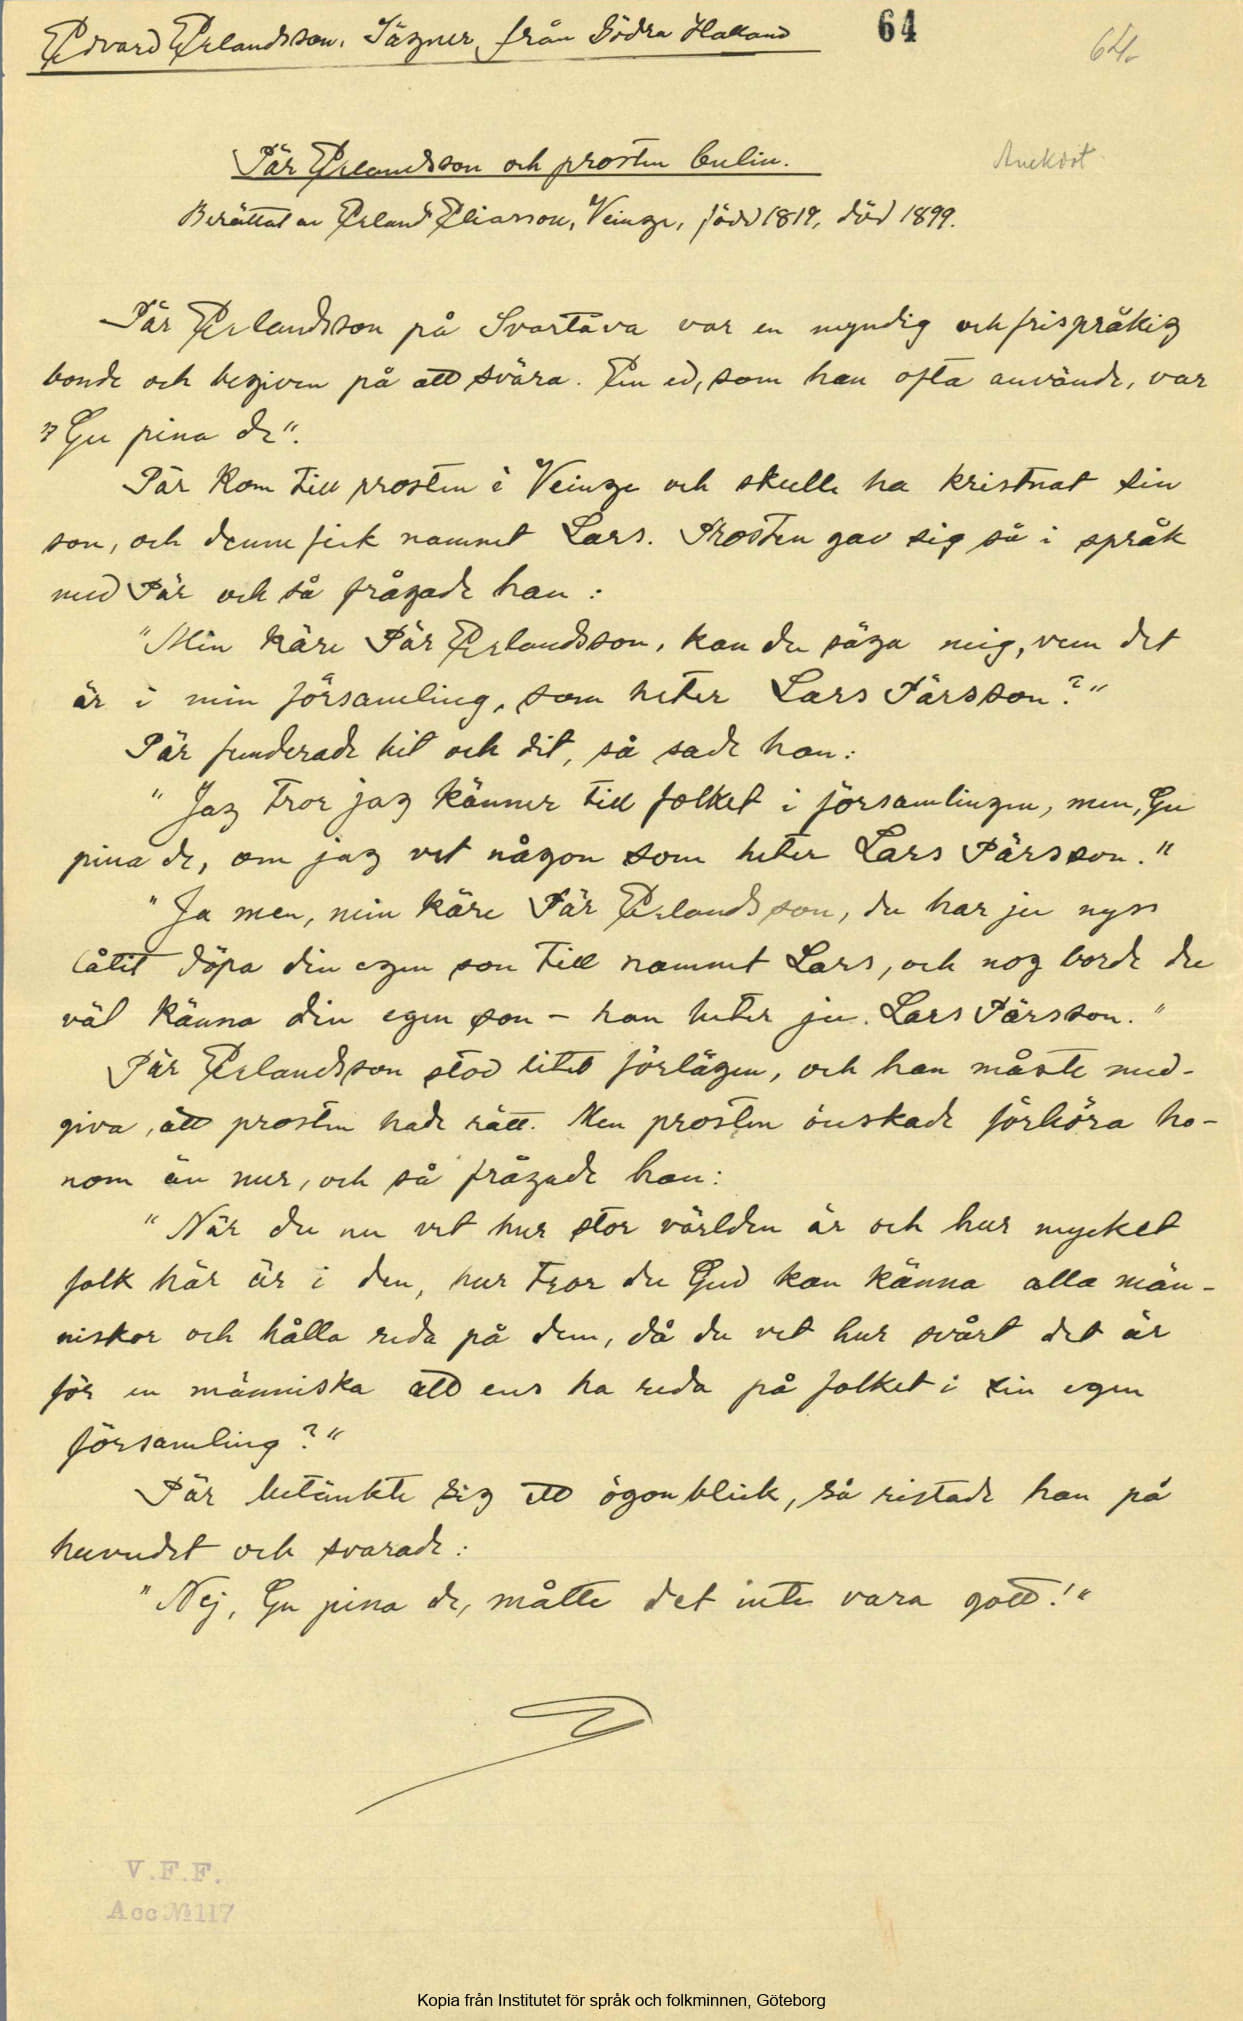 Edvard Erlandsson. Sägner från Södra Halland
64
64.
Pär Erlandsson och prosten Culin.
Anekdot
Berättat av Erland Eliasson, Veinge, född 1819, död 1899.
Pär Erlandsson på Svartåva var en myndig och frispråkig
bonde och begiven på att svära. En ed, som han ofta använde, var
"Gu pina de".
Pär kom till prosten i Veinge och skulle ha kristnat sin
son, och denne fick namnet Lars. Prosten gav sig så i språk
med Pär och så frågade han:
"Min käre Pär Erlandsson, kan du säga mig, vem det
är i min församling, som heter Lars Pärsson?"
Pär funderade hit och dit, så sade han:
"Jag tror jag känner till folket i församlingen, men, Gu
pina de, om jag vet någon som heter Lars Pärsson."
"Ja men, min käre Pär Erlandsson, du har ju nyss
låtit döpa din egen son till namnet Lars, och nog borde du
väl känna din egen son – han heter ju Lars Pärsson."
Pär Erlandsson stod litet förlägen, och han måste med-
giva, att prosten hade rätt. Men prosten önskade förhöra ho-
nom än mer, och så frågade han:
"När du nu vet hur stor världen är och hur mycket
folk här är i den, hur tror du Gud kan känna alla män-
niskor och hålla reda på dem, då du vet hur svårt det är
för en människa att ens ha reda på folket i sin egen
församling?"
Pär betänkte sig ett ögonblick, så ristade han på
huvudet och svarade:
"Nej, Gu pina de, måtte det inte vara gott!"
V.F.F.
Acc № 117
Kopia från Institutet för språk och folkminnen, Göteborg